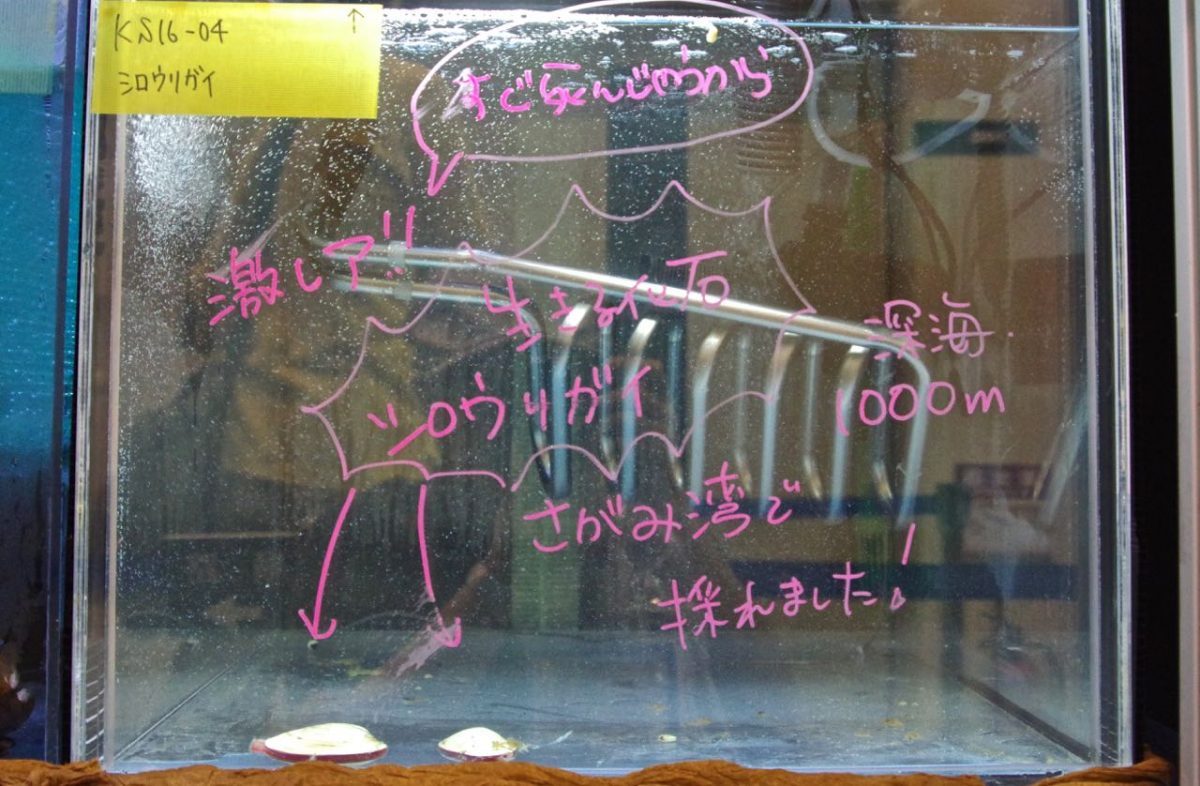 KS16-04
↑
シロウリガイ
すぐ死んじゃうから
激レア!!
生きる化石
シロウリガイ
深海
1000m
さがみ湾で
採れました!